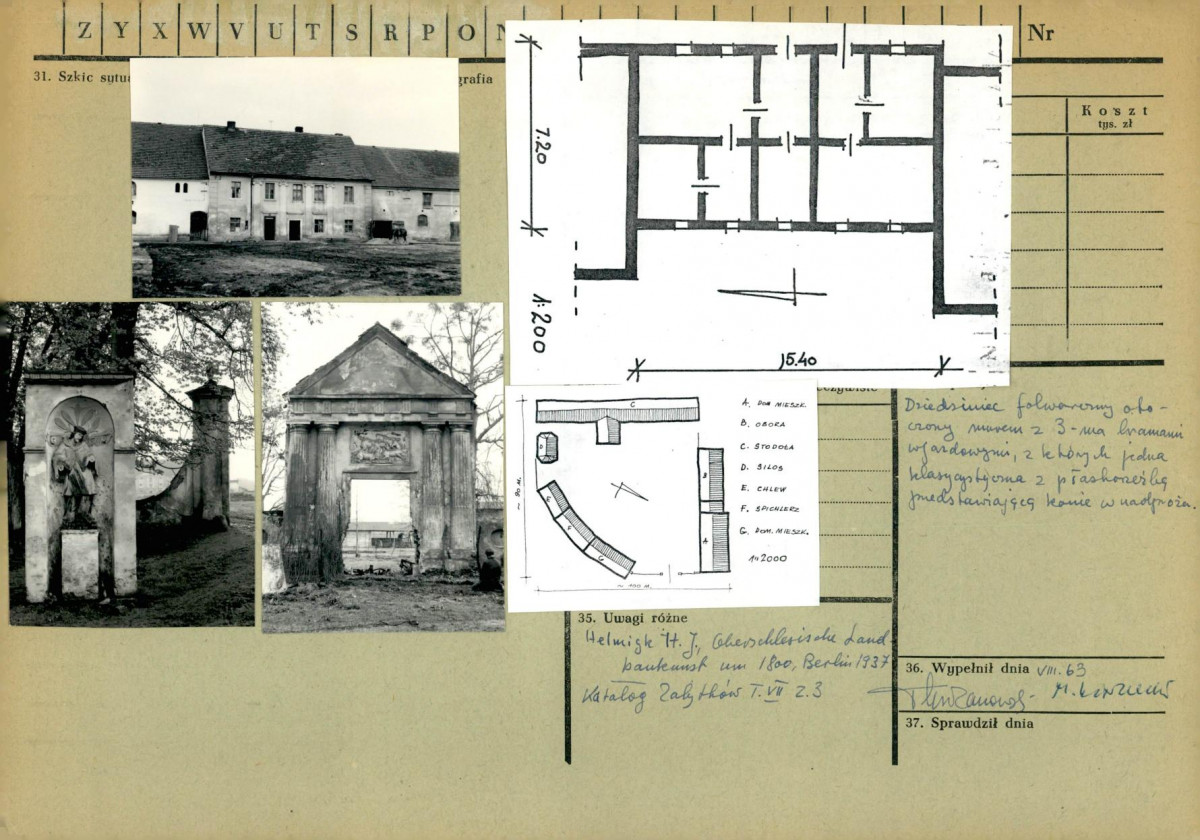 Z Y X W V U T S R P O N
Nr
31. Szkic sytu
grafia
Koszt
tys. zł
7.20
1:200
15.40
C
D
E
F
G
B
A
~ 90 M.
~ 100 M.
A. DOM MIESZK.
B. OBORA
C. STODOŁA
D. SILOS
E. CHLEW
F. SPICHLERZ
G. DOM. MIESZK.
1:2000
Dziedziniec folwarczny oto-
czony murem z 3-ma bramami
wjazdowymi, z których jedna
klasycystyczna z płaskorzeźbą
przedstawiającą konie w nadprożu.
35. Uwagi różne
Helmigk H. J., Oberschlesische Land
baukunst um 1800, Berlin 1937
Katalog Zabytków T. VII z. 3
36. Wypełnił dnia VIII. 63
37. Sprawdził dnia